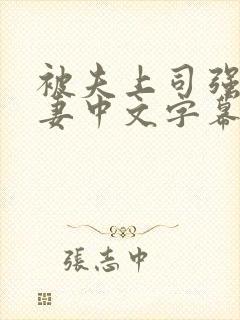 被夫上司强
妻中文字幕
張志中